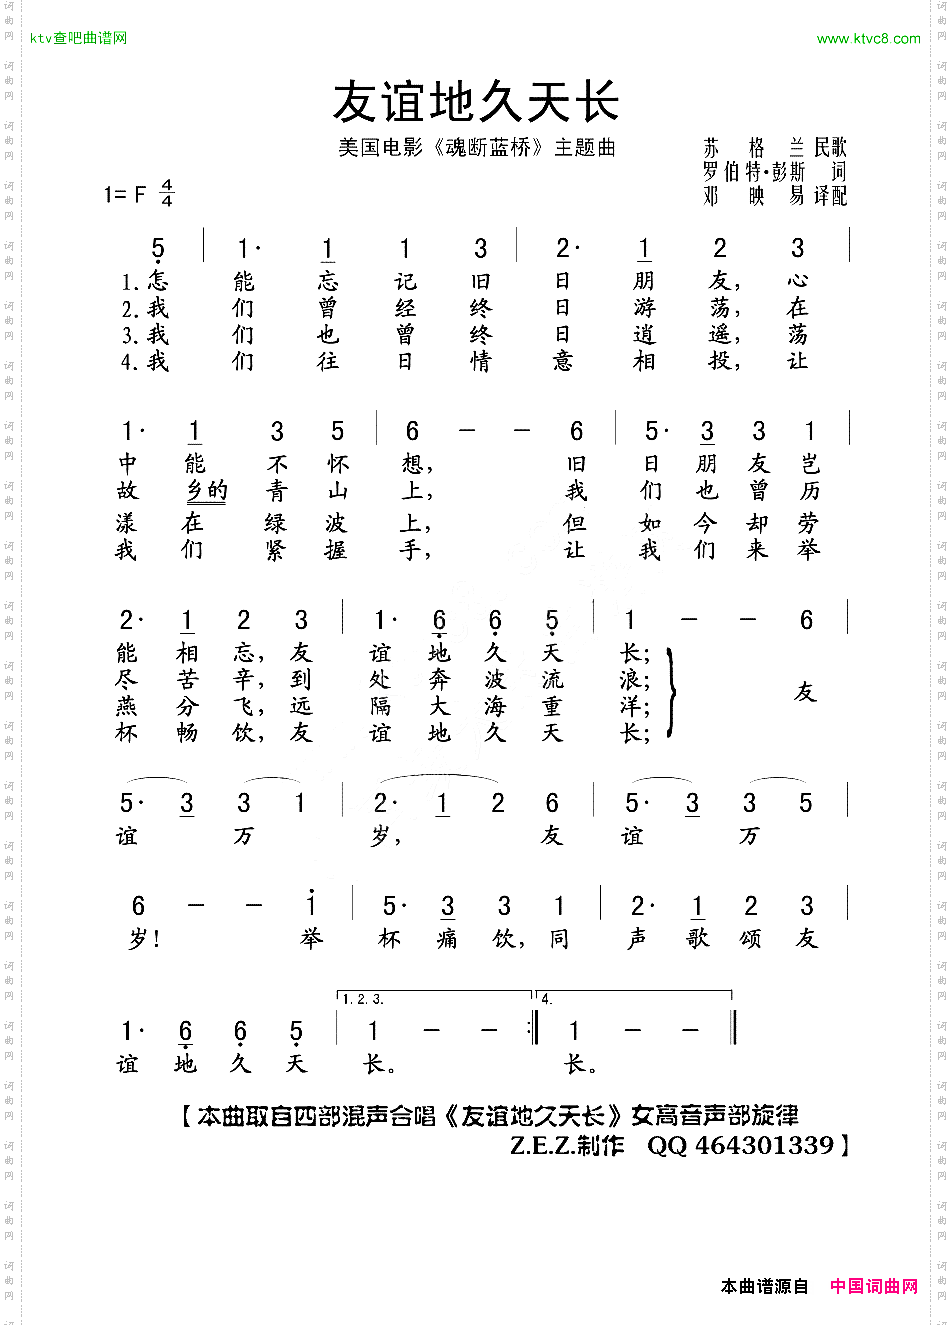 ktv查吧曲谱网 www.ktvc8.com
友谊地久天长
美国电影《魂断蓝桥》主题曲
苏格兰民歌
罗伯特·彭斯 词
1= F 4/4 邓映易 译配
5 | 1· 1 1 3 | 2· 1 2 3 |
1.怎能忘记旧日朋友,心
2.我们曾经终日游荡,在
3.我们也曾终日逍遥,荡
4.我们往日情意相投,让
1· 1 3 5 | 6 – – 6 | 5· 3 3 1 |
中能不怀想,旧日朋友岂
故乡的青山上,我们也曾历
漾在绿波上,但如今却劳
我们紧握手,让我们来举
2· 1 2 3 | 1· 6 6 5 | 1 – – 6 |
能相忘,友谊地久天长;
尽苦辛,到处奔波流浪; 友
燕分飞,远隔大海重洋;
杯畅饮,友谊地久天长;
5· 3 3 1 | 2· 1 2 6 | 5· 3 3 5 |
谊万岁,友谊万
6 – – 1 | 5· 3 3 1 | 2· 1 2 3 |
岁!举杯痛饮,同声歌颂友
1.2.3. 4.
1· 6 6 5 | 1 – – :‖ 1 – – ‖
谊地久天长。长。
【本曲取自四部混声合唱《友谊地久天长》女高音声部旋律
Z.E.Z.制作 QQ 464301339】
本曲谱源自 中国词曲网